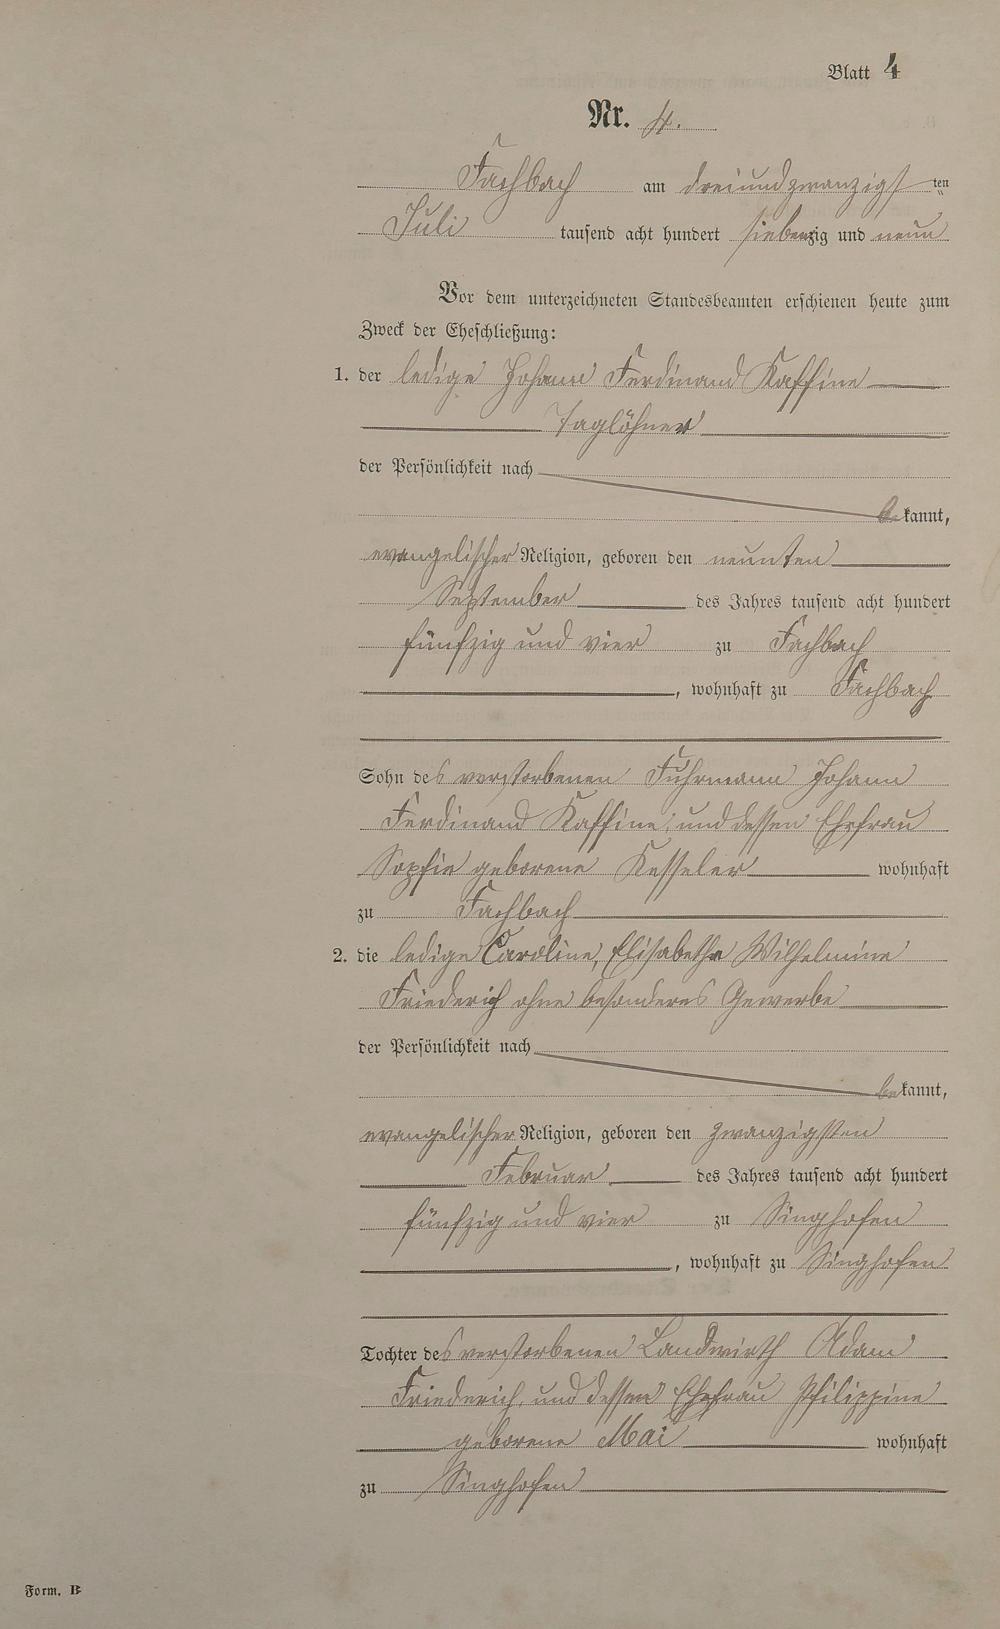 Blatt 4
Nr. 4.
Fachbach am dreiundzwanzigsten
Juli tausend acht hundert siebenzig und neun
Vor dem unterzeichneten Standesbeamten erschienen heute zum
Zweck der Eheschließung:
1. der ledige Johann Ferdinand Kaffine
Taglöhner
der Persönlichkeit nach
bekannt,
evangelischer Religion, geboren den neunten
September des Jahres tausend acht hundert
fünfzig und vier zu Fachbach
, wohnhaft zu Fachbach
Sohn des verstorbenen Fuhrmann Johann
Ferdinand Kaffine, und dessen Ehefrau
Sopfie geborene Kesseler wohnhaft
zu Fachbach
2. die ledige Caroline, Elisabetha Wilhelmine
Friederich ohne besonderes Gewerbe
der Persönlichkeit nach
bekannt,
evangelischer Religion, geboren den zwanzigsten
Februar des Jahres tausend acht hundert
fünfzig und vier zu Singhofen
, wohnhaft zu Singhofen
Tochter des verstorbenen Landwirth Adam
Friederich, und dessen Ehefrau Philippine
geborene Mai wohnhaft
zu Singhofen
Form. B